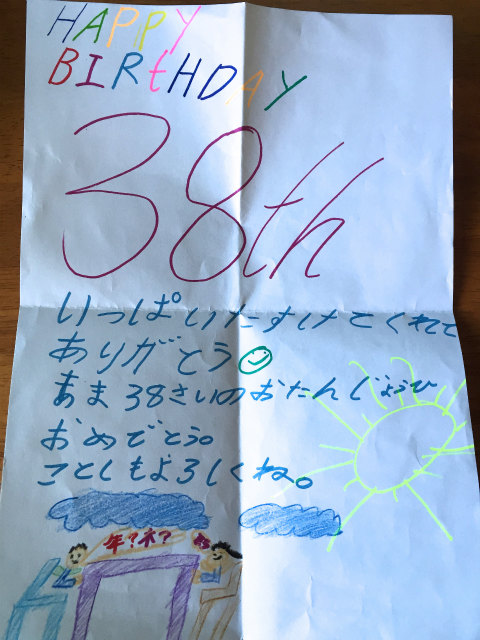 HAPPY
BIRtHDAY
38th
いっぱいたすけてくれて
ありがとう
まま38さいのおたんじょうび
おめでとう。
ことしもよろしくね。
年?木?